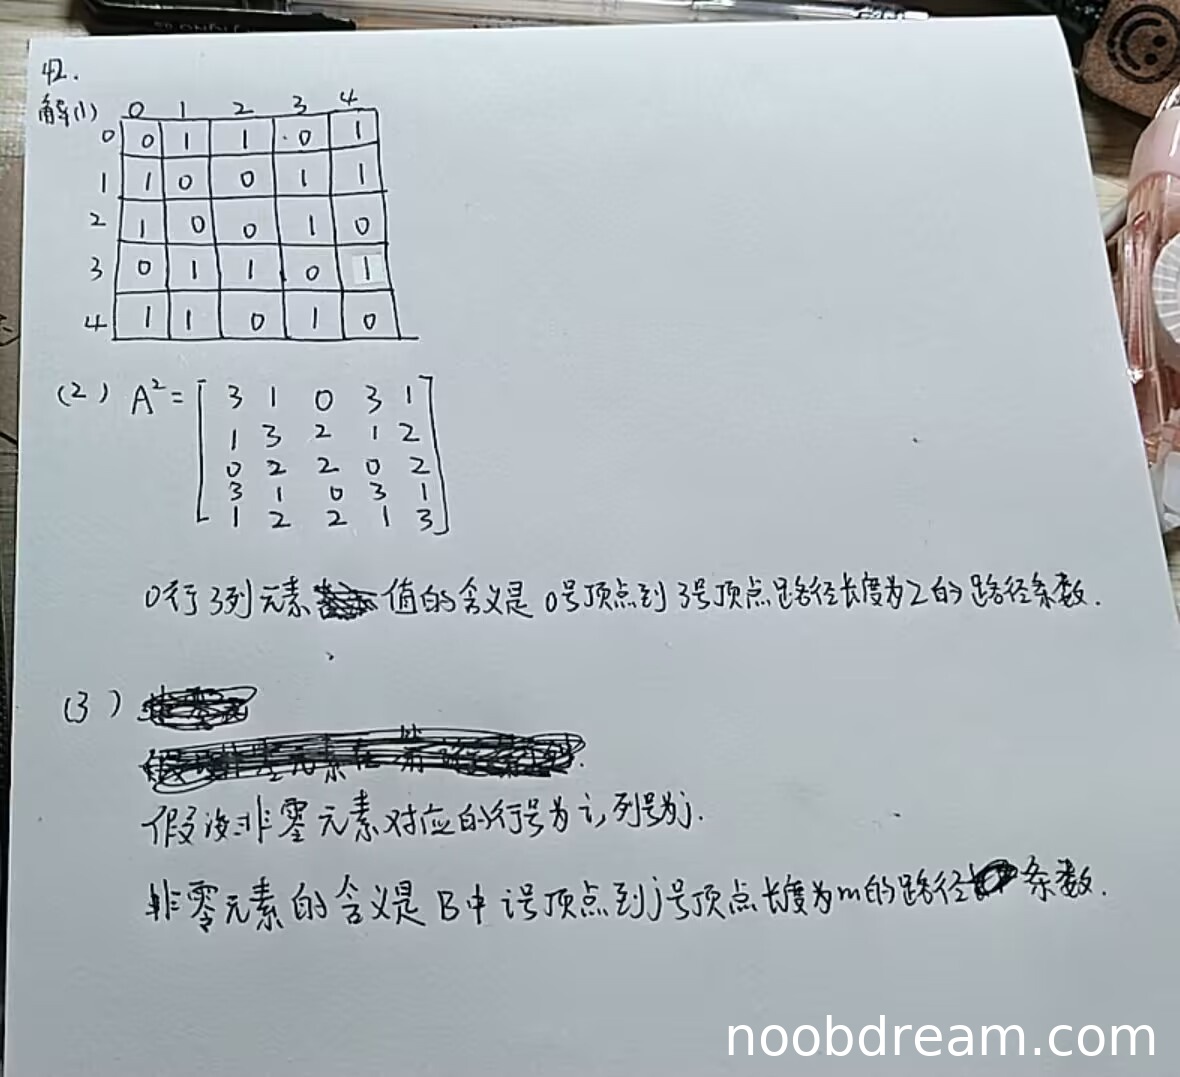 42.
解(1)
0 1 2 3 4
0 0 1 1 0 1
1 1 0 0 1 1
2 1 0 0 1 0
3 0 1 1 0 1
4 1 1 0 1 0
(2) A²= [ 3 1 0 3 1
1 3 2 1 2
0 2 2 0 2
3 1 0 3 1
1 2 2 1 3 ]
0行3列元素值的含义是 0号顶点到3号顶点路径长度为2的路径条数.
(3)
假设非零元素对应的行号为i,列号为j.
非零元素的含义是B中i号顶点到j号顶点长度为m的路径条数.
noobdream.com